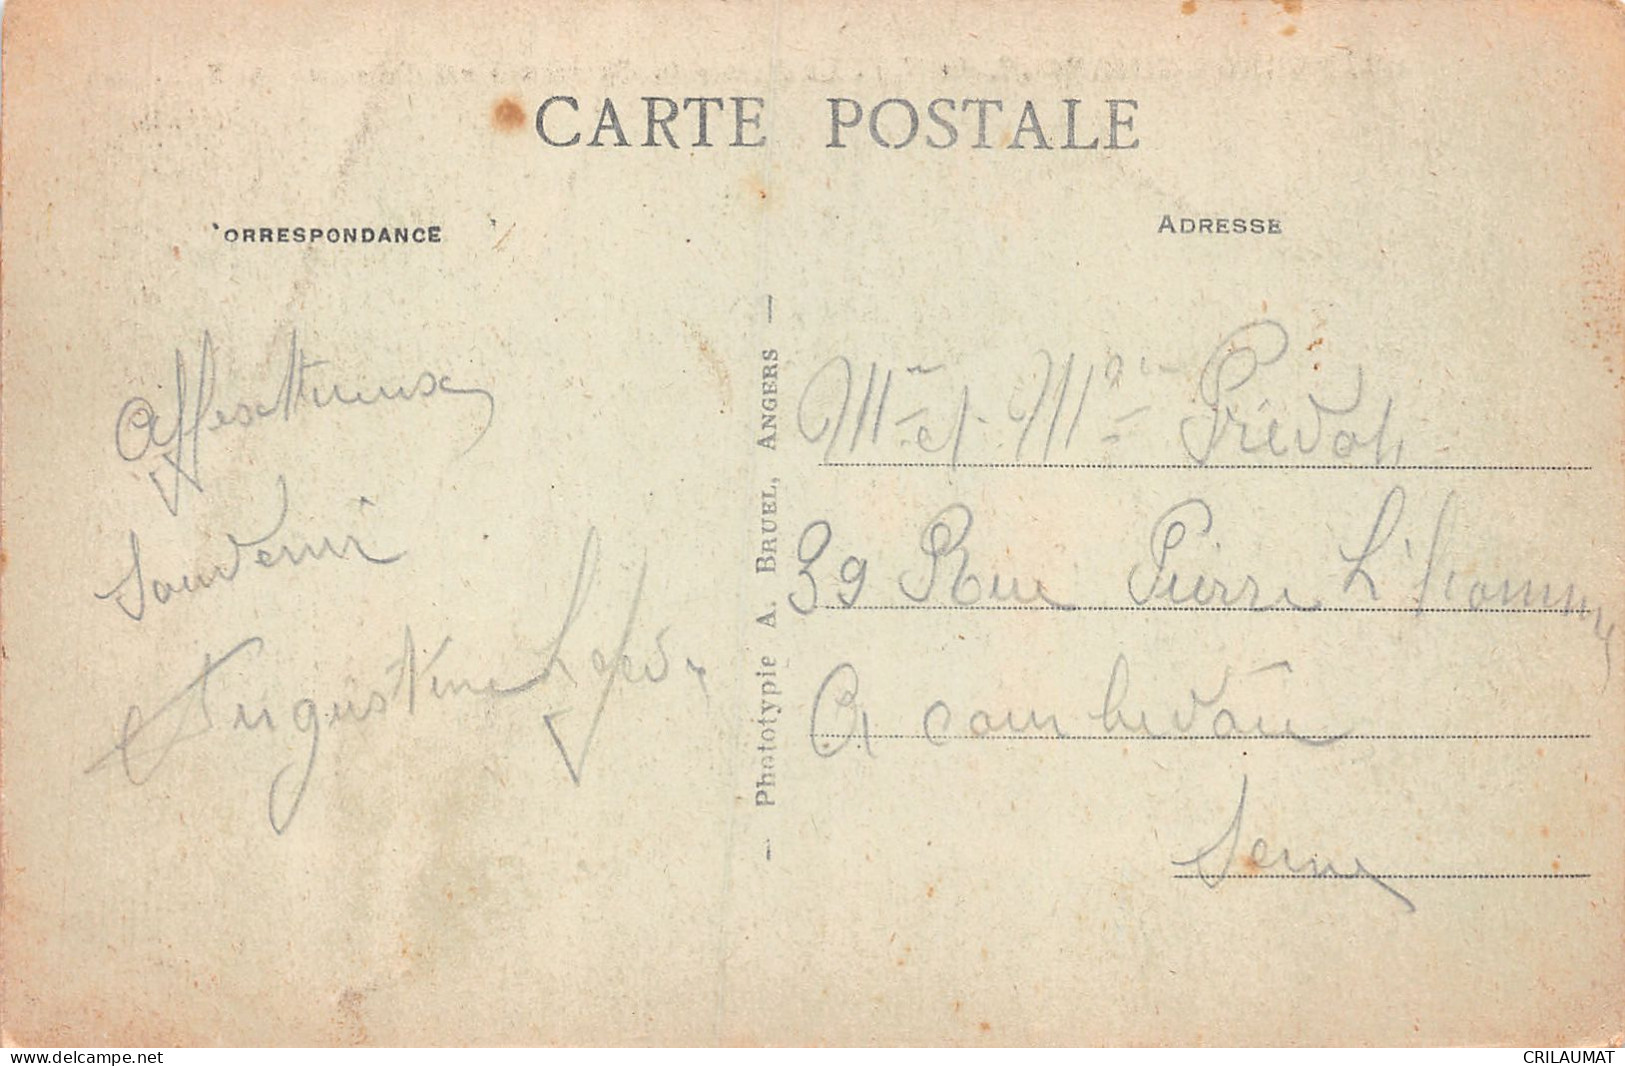 CARTE POSTALE
ORRESPONDANCE
ADRESSE
Affexttueux
Souvenir
Augustine
— Phototypie A. Bruel, ANGERS —
Mr et Mme Prévot
39 Rue Pierre L'homme
A courbevoie
Seine
www.delcampe.net
CRILAUMAT